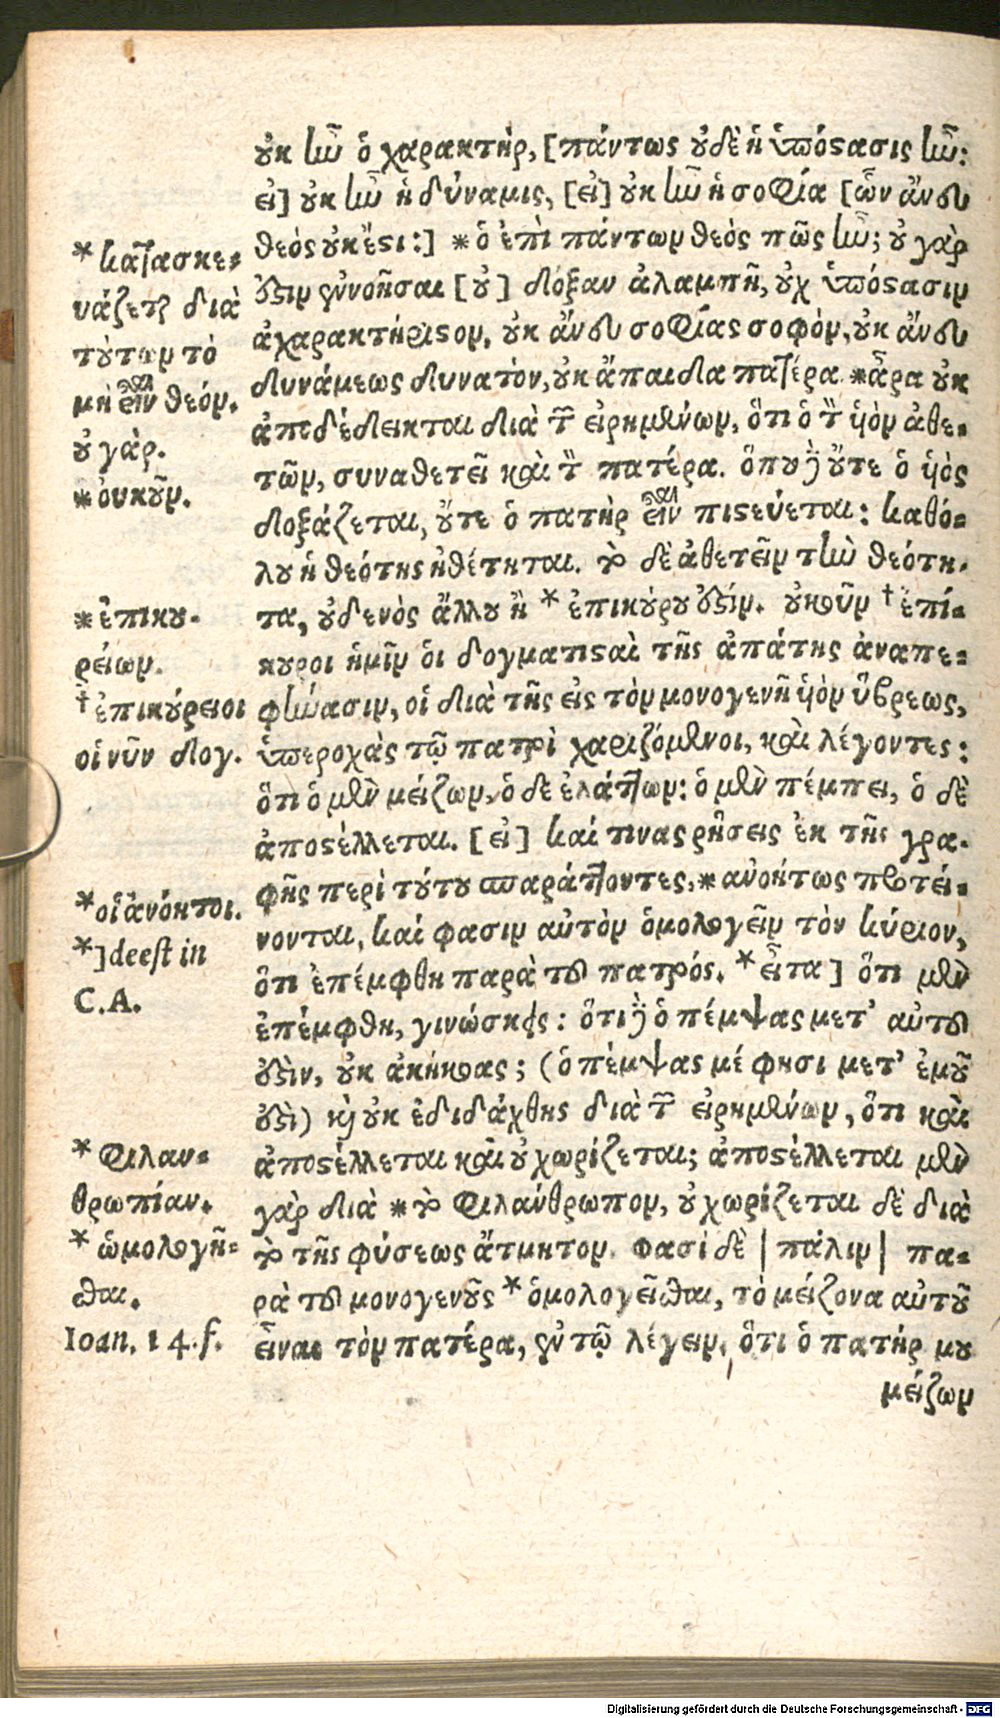 οὐκ ἦν ὁ χαρακτὴρ, [πάντως οὐδὲ ἡ ὑπόστασις ἦν:
εἰ] οὐκ ἦν ἡ δύναμις, [εἰ] οὐκ ἦν ἡ σοφία [ὧν ἄνευ
θεὸς οὐκ ἔστι:] * ὁ ἐπὶ πάντων θεὸς πῶς ἦν; οὐ γὰρ
ἔστιν ἐννοῆσαι [οὐ] δόξαν ἀλαμπῆ, οὐχ ὑπόστασιν
ἀχαρακτήριστον, οὐκ ἄνευ σοφίας σοφὸν, οὐκ ἄνευ
δυνάμεως δυνατὸν, οὐκ ἄπαιδα πατέρα. * ἆρα οὐκ
ἀποδέδεικται διὰ τῶν εἰρημένων, ὅτι ὁ τὸν υἱὸν ἀθε-
τῶν, συναθετεῖ καὶ τὸν πατέρα. ὅπου δὲ οὔτε ὁ υἱὸς
δοξάζεται, οὔτε ὁ πατὴρ εἶναι πιστεύεται: καθό-
λου ἡ θεότης ἠθέτηται. τὸ δὲ ἀθετεῖν τὴν θεότη-
τα, οὐδενὸς ἄλλου ἢ * ἐπικούρου ἐστίν. οὐκοῦν † ἐπί-
κουροι ἡμῖν οἱ δογματισταὶ τῆς ἀπάτης ἀναπε-
φήνασιν, οἱ διὰ τῆς εἰς τὸν μονογενῆ υἱὸν ὕβρεως,
ὑπεροχὰς τῷ πατρὶ χαριζόμενοι, καὶ λέγοντες:
ὅτι ὁ μὲν μείζων, ὁ δὲ ἐλάττων: ὁ μὲν πέμπει, ὁ δὲ
ἀποστέλλεται. [εἰ] καί τινας ῥήσεις ἐκ τῆς γρα-
φῆς περὶ τούτου παράττοντες, * ἀνοήτως προτεί-
νονται, καί φασιν αὐτὸν ὁμολογεῖν τὸν κύριον,
ὅτι ἐπέμφθη παρὰ τοῦ πατρός. * εἶτα] ὅτι μὲν
ἐπέμφθη, γινώσκεις: ὅτι δὲ ὁ πέμψας μετ' αὐτοῦ
ἐστὶν, οὐκ ἀκήκοας; (ὁ πέμψας μέ φησι μετ' ἐμοῦ
ἐστὶ) καὶ οὐκ ἐδιδάχθης διὰ τῶν εἰρημένων, ὅτι καὶ
ἀποστέλλεται καὶ οὐ χωρίζεται; ἀποστέλλεται μὲν
γὰρ διὰ * τὸ φιλάνθρωπον, οὐ χωρίζεται δὲ διὰ
τὸ τῆς φύσεως ἄτμητον. Φασὶ δὲ | πάλιν | πα-
ρὰ τοῦ μονογενοῦς * ὁμολογεῖσθαι, τὸ μείζονα αὐτοῦ
εἶναι τὸν πατέρα, ἐν τῷ λέγειν, ὅτι ὁ πατήρ μου
μείζων
* κατασκε-
υάζεται διὰ
τούτων τὸ
μὴ εἶναι θεόν.
οὐ γὰρ.
* οὐκοῦν.
* ἐπικου-
ρείων.
† ἐπικούρειοι
οἱ νῦν δογ.
* οἱ ἀνόητοι.
*] deest in
C.A.
* Φιλαν-
θρωπίαν.
* ὡμολογῆ-
σθαι.
Ioan. 14.f.
Digitalisierung gefördert durch die Deutsche Forschungsgemeinschaft - DFG